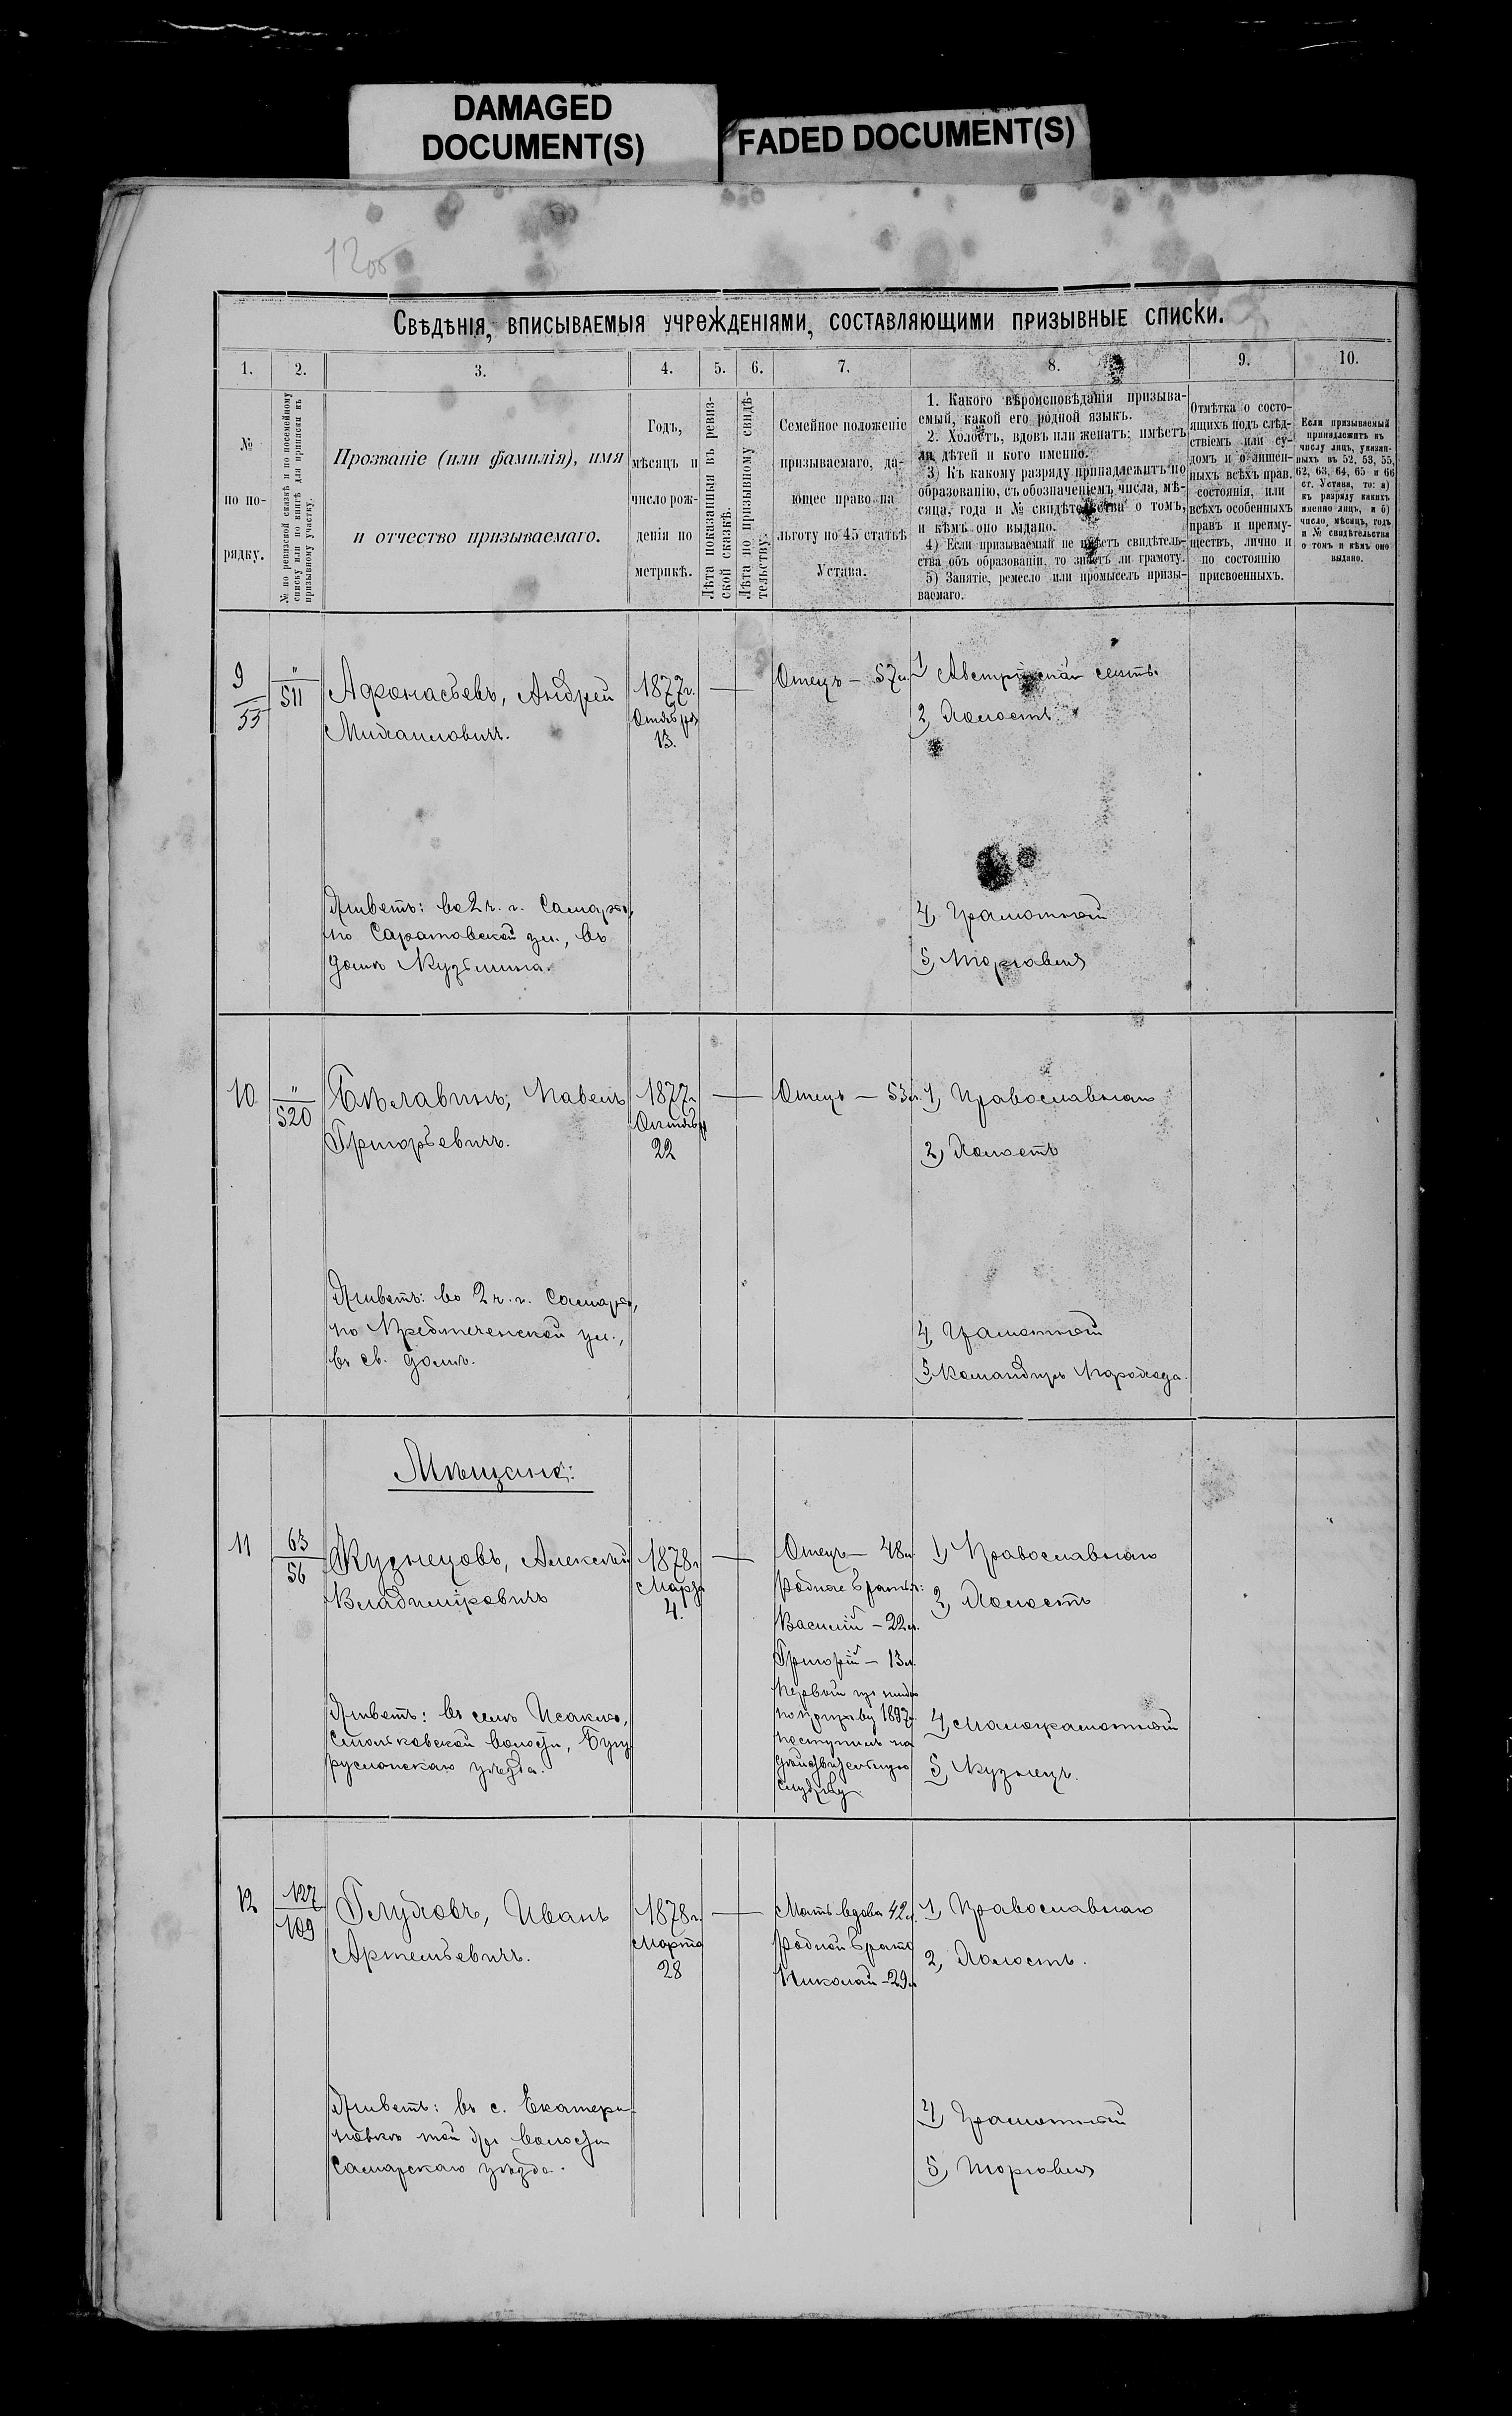 DAMAGED
DOCUMENT(S)
FADED DOCUMENT(S)
1200
Свѣдѣнія, вписываемыя учрежденіями, составляющими призывные списки.
1. 2. 3. 4. 5. 6. 7. 8. 9. 10.
№
по по-
рядку.
№ по ревизской сказкѣ и по посемейному
списку или по книгѣ для приписки къ
призывному участку.
Прозваніе (или фамилія), имя
и отчество призываемаго.
Годъ,
мѣсяцъ и
число рож-
денія по
метрикѣ.
Лѣта показанныя въ ревиз-
ской сказкѣ.
Лѣта по призывному свидѣ-
тельству.
Семейное положеніе
призываемаго, да-
ющее право на
льготу по 45 статьѣ
Устава.
1. Какого вѣроисповѣданія призыва-
емый, какой его родной языкъ.
2. Холостъ, вдовъ или женатъ; имѣетъ
ли дѣтей и кого именно.
3) Къ какому разряду принадлежитъ по
образованію, съ обозначеніемъ числа, мѣ-
сяца, года и № свидѣтельства о томъ,
и кѣмъ оно выдано.
4) Если призываемый не имѣетъ свидѣтель-
ства объ образованіи, то знаетъ ли грамоту.
5) Занятіе, ремесло или промыселъ призы-
ваемаго.
Отмѣтка о состо-
ящихъ подъ слѣд-
ствіемъ или су-
домъ и о лишен-
ныхъ всѣхъ прав.
состоянія, или
всѣхъ особенныхъ
правъ и преиму-
ществъ, лично и
по состоянію
присвоенныхъ.
Если призываемый
принадлежитъ къ
числу лицъ, указан-
ныхъ въ 52, 53, 55,
62, 63, 64, 65 и 66
ст. Устава, то: а)
къ разряду какихъ
именно лицъ, и б)
число, мѣсяцъ, годъ
и № свидѣтельства
о томъ и кѣмъ оно
выдано.
9
55
"
511
Афонасьевъ, Андрей
Михаиловичъ.
1877г.
Октября
13.
Отецъ – 57л.
1) Австрійской секты.
2) Холостъ
Живетъ: во 2 ч. г. Самары,
по Саратовской ул., въ
домѣ Кузьмина.
4) Грамотный
5) Торговля
10
"
520
Бѣлавинъ, Павелъ
Григорьевичъ.
1877г
Октября
22
Отецъ – 53л.
1) Православнаго
2) Холостъ
Живетъ: во 2 ч. г. Самары,
по Предтеченской ул.,
въ св. домѣ.
4) Грамотный
5) Командиръ Парохода.
Мѣщане:
11
63
56
Кузнецовъ, Алексѣй
Владиміровичъ
1878г
Марта
4.
Отецъ – 48л
Родные братья:
Василій – 22л.
Григорій – 13л.
Первый изъ нихъ
по призыву 1897г.
поступилъ на
дѣйствительную
службу
1) Православнаго
2) Холостъ
Живетъ: въ селѣ Исаково,
волости, Бугу
русланскаго уѣзда.
4) Малограмотный
5) Кузнецъ.
12
127
109
Глуховъ, Иванъ
Артемьевичъ.
1878г.
Марта
28
Мать вдова 42л.
Родной братъ
Николай – 29л
1) Православнаго
2) Холостъ.
Живетъ: въ с. Екатери
новкѣ той же волости
Самарскаго уѣзда.
4) Грамотный
5) Торговля